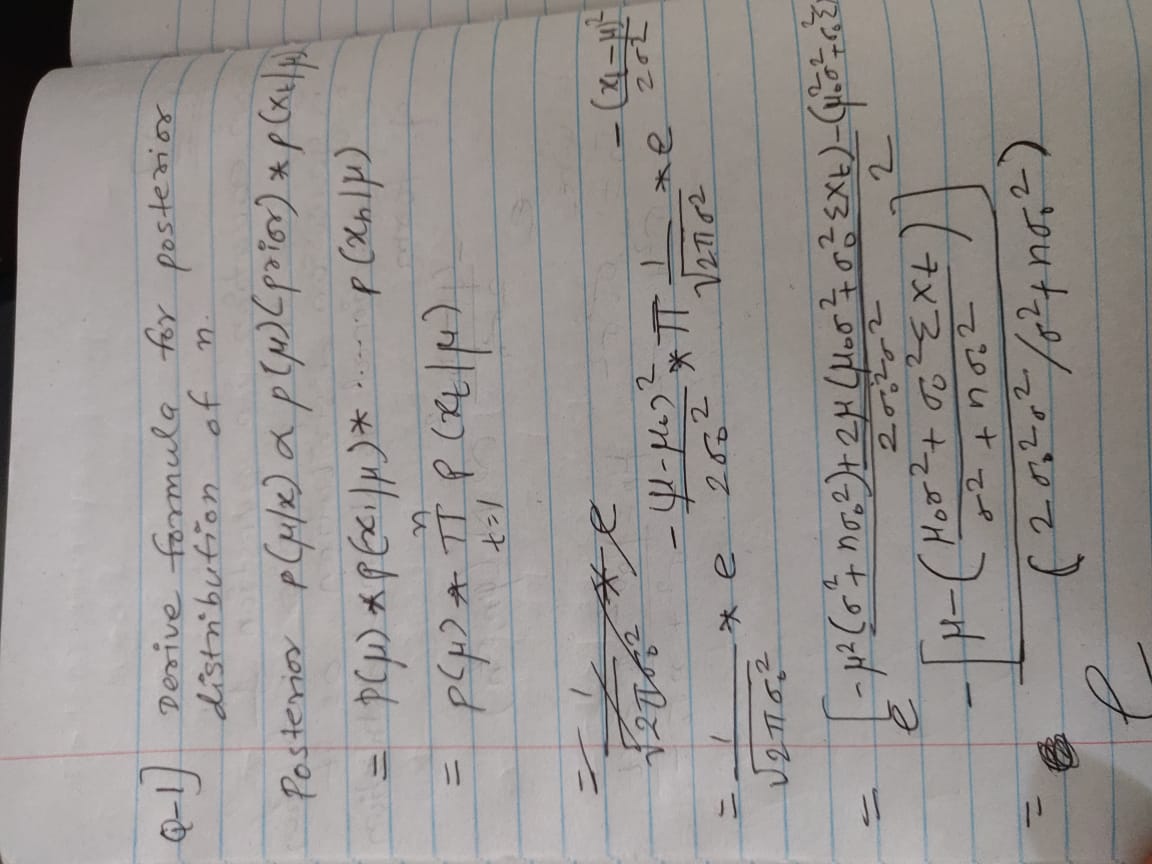 Q-1] Derive formula for posterior
distribution of n.
Posterior p(μ/x) ∝ p(μ)(prior) * p(xt|μ)
= p(μ) * p(x1|μ) * ...... p(xn|μ)
= p(μ) * n∏t=1 p(xt|μ)
= 1/√2πσ0² * e
= 1/√2πσ0² * e -(μ-μ0)²/2σ0² * ∏ 1/√2πσ² * e -(xt-μ)²/2σ²
= e [-μ²(σ²+nσ0²)+2μ(μ0σ²+σ0²Σxt)-(μ0²σ²+σ0²Σ/2σ0²σ² 2
= e -[μ-(μ0σ²+σ0²Σxt/σ²+nσ0²)]/(2σ0²σ²/σ²+nσ0²)